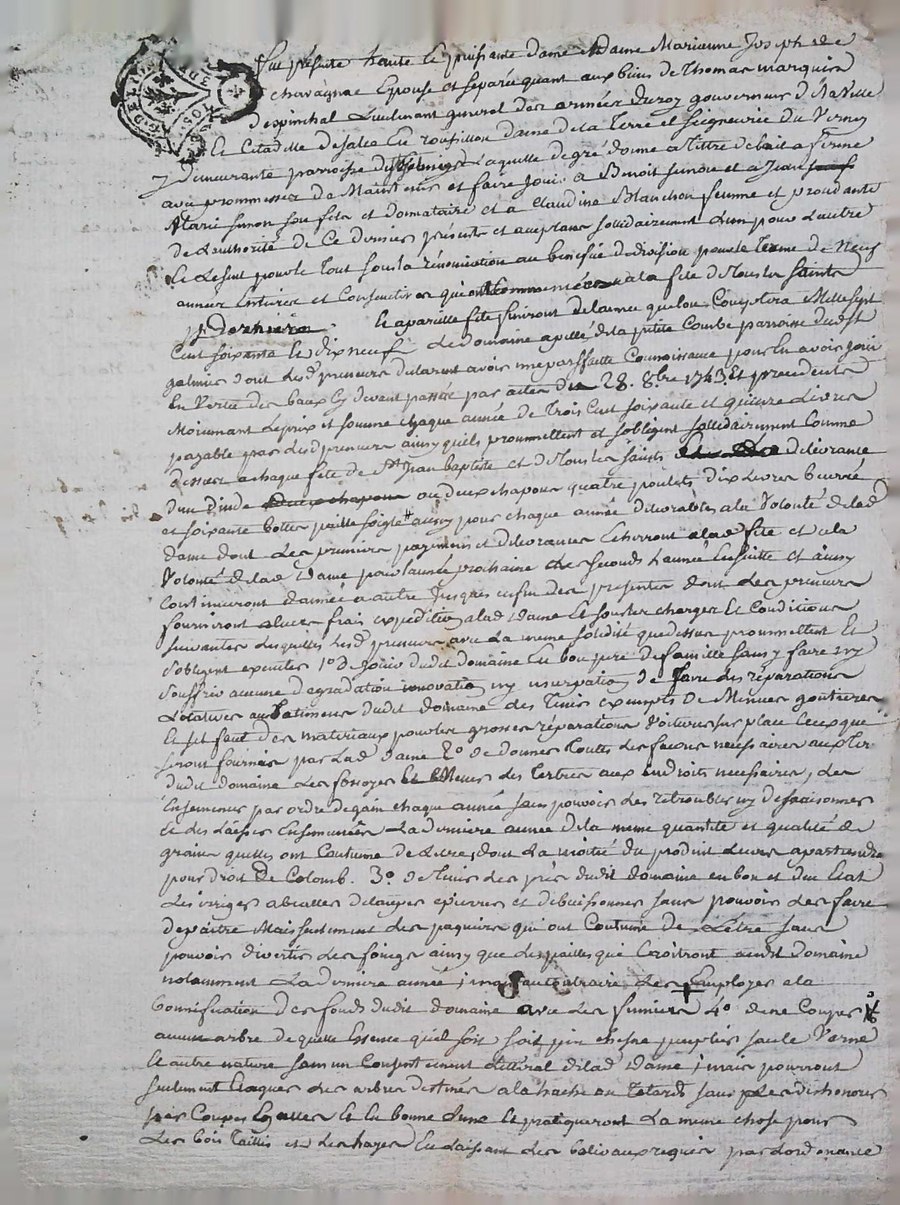 Fut présente haute et puissante dame Dame Marianne Joseph de
chavagnac Epouse et separée quant aux biens de Thomas marquis
despinchal Lieutenant general des armées du roy gouverneur de la Ville
et Citadelle de salce en rousillon dame de la Terre et seigneurie du Vernay
y demeurante parroisse de Laquelle de gré donne a tittre de bail a ferme
avec prommesse de Maintenir et faire Jouir a Benoit simon et a Jean
Marie simon son fils et donnataire et a Claudine Blanchon femme et procédante
de Lauthorité de Ce dernier présents et acceptans sollidairement Lun pour Lautre
et Le seul pour le tout sous la rénonciation au bénéfice de division pour le terme de neuf
années Entieres et Consecutives qui ont Commencées a la fête de Tous les saints
derniere. et a pareille fête finiront de lannée que lon Comptera Mille sept
Cent soixante et dix neuf Le domaine apellé de la petite Combe parroisse dudit
galmier dont Lesd. preneurs déclarent avoir une parffaitte Connoissance pour En avoir joui
En Vertu des baux Cy devant passés par actes du 28. 8bre 1743. Et precedents
Moyennant Le prix et somme chaque année de Trois Cent soixante et quinze Livres
payable par lesd. preneurs ainsy quils prommettent et sobligent sollidairement Comme
dessus a chaque fête de St. Jean baptiste et de Tous les saints delivrance
dun dinde ou deux chapons quatre poulets dix Livres beurre
et soixante bottes paille soigle aussy pour chaque année delivrables a la Volonté de lad.
dame dont Les premiers payemens et delivrances Echerront a lad. fête et a la
Volonté de lad. Dame pour lannée prochaine Les seconds Lannée Ensuitte et ainsy
Continueront dannée a autre Jusques a fin des presentes dont Les preneurs
fourniront a leurs frais expedition a lad. Dame Et sous les charges Et Conditions
suivantes Lesquelles Lesd. preneurs avec La meme solidité que dessus prommettent Et
sobligent executer 1o. de Jouir dudit domaine En bon pere de famille sans y faire ny
souffrir aucune degradation innovation ny usurpation de faire les réparations
Locatives aux Batimens dudit domaine des Tenir exempts de Menues gouttieres
Et sil faut des materiaux pour les grosses réparations Voiturés sur place Ceux que
seront fournies par Lad. dame 2o. de donner Toutes Les facons necessaires aux Terres
dudit domaine Les fossoyer Et Elever des Tertres aux Endroits necessaires, Les
Ensemencer par ordre de gain chaque année sans pouvoir Les retroubler ny dessaisonner
Et Les Laisser Ensemencées La derniere année de la meme quantité et qualité de
grains quelles ont Coutume de Lètre, dont La moitié du produit Leur apartiendra
pour droit de Colomb. 3o. de Tenir Les prés dudit domaine en bon et due Etat
Les erriger abealles delavyes epierrés et debuissonnés sans pouvoir Les faire
depaitre Mais seulement Les paquiers qui ont Coutume de Lètre sans
pouvoir divertir Les foings ainsy que Les pailles qui Croitront audit Domaine
notamment La derniere année ; mais au Contraire Les Employer a la
bonnification des fonds dudit domaine avec Les fumiers 4o. de ne Couper
aucun arbre de quelle Essence quil soit soit pin chesne peuplier saule Verne
et autre nature sans un Consentement Littéral de lad. Dame ; mais pourront
seulement Elaguer Les arbres destinés a la hache ou Tetards sans Les deshonorer
par Coupes Egalles et En bonne Lune Et pratiqueront La meme chose pour
Les bois Taillis et Les hayes En Laissant Les baliveaux requis par Lordonnance